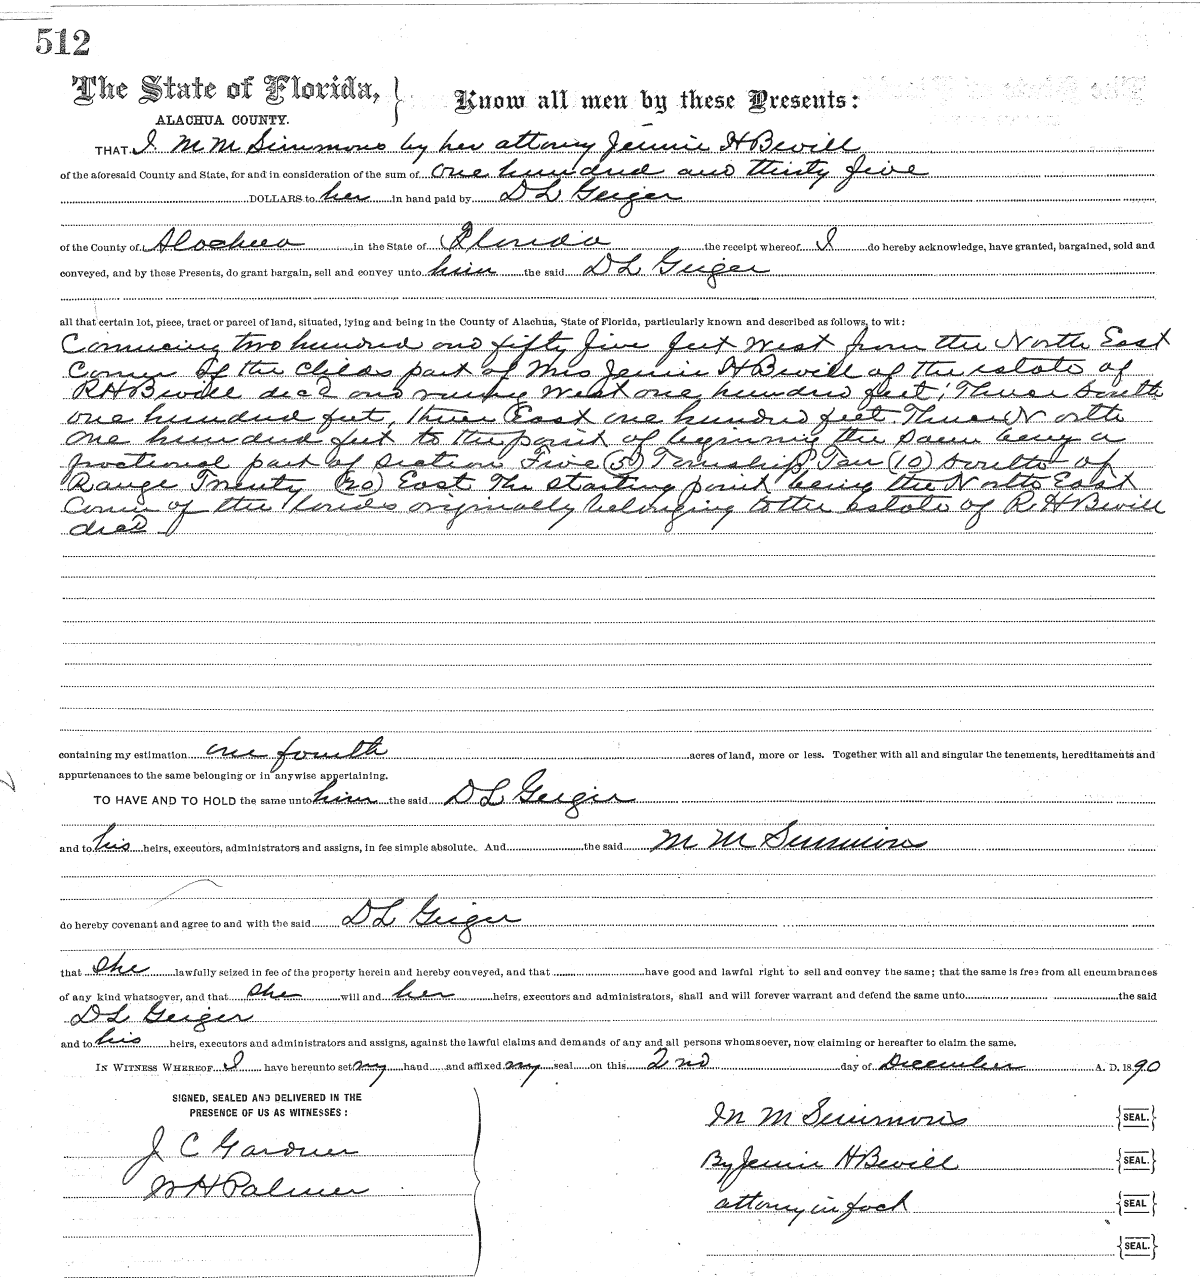 512
The State of Florida, } Know all men by these Presents:
ALACHUA COUNTY.
THAT I M M Simmons by her attorny Jennie H Bevill
of the aforesaid County and State, for and in consideration of the sum of one hundred and thirty five
DOLLARS to her in hand paid by D L Geiger
of the County of Alachua in the State of Florida the receipt whereof I do hereby acknowledge, have granted, bargained, sold and
conveyed, and by these Presents, do grant bargain, sell and convey unto him the said D L Geiger
all that certain lot, piece, tract or parcel of land, situated, lying and being in the County of Alachua, State of Florida, particularly known and described as follows, to wit:
Comencing two hundred and fifty five feet West from the North East
Corner of the Childs part of Mrs Jennie H Bevill of the estate of
R H Bevill decd and runing West one hundred feet, Thence South
one hundred feet, thence East one hundred feet Thence North
one hundred feet to the point of beginning the Same being a
fractional part of Section Five (5) Township Ten (10) South of
Range Twenty (20) East The starting point being the North East
Corner of the lands originally belonging to the estate of R H Bevill
decd
containing my estimation one fourth acres of land, more or less. Together with all and singular the tenements, hereditaments and
appurtenances to the same belonging or in anywise appertaining.
TO HAVE AND TO HOLD the same unto him the said D L Geiger
and to his heirs, executors, administrators and assigns, in fee simple absolute. And the said M M Simmons
do hereby covenant and agree to and with the said D L Geiger
that she lawfully seized in fee of the property herein and hereby conveyed, and that have good and lawful right to sell and convey the same; that the same is free from all encumbrances
of any kind whatsoever, and that she will and her heirs, executors and administrators, shall and will forever warrant and defend the same unto the said
D L Geiger
and to his heirs, executors and administrators and assigns, against the lawful claims and demands of any and all persons whomsoever, now claiming or hereafter to claim the same.
IN WITNESS WHEREOF I have hereunto set my hand and affixed my seal on this 2nd day of December A. D. 1890
SIGNED, SEALED AND DELIVERED IN THE
PRESENCE OF US AS WITNESSES:
J C Gardner
W H Palmer
M M Simmons {SEAL.}
By Jennie H Bevill {SEAL.}
attorny in fact {SEAL}
{SEAL.}